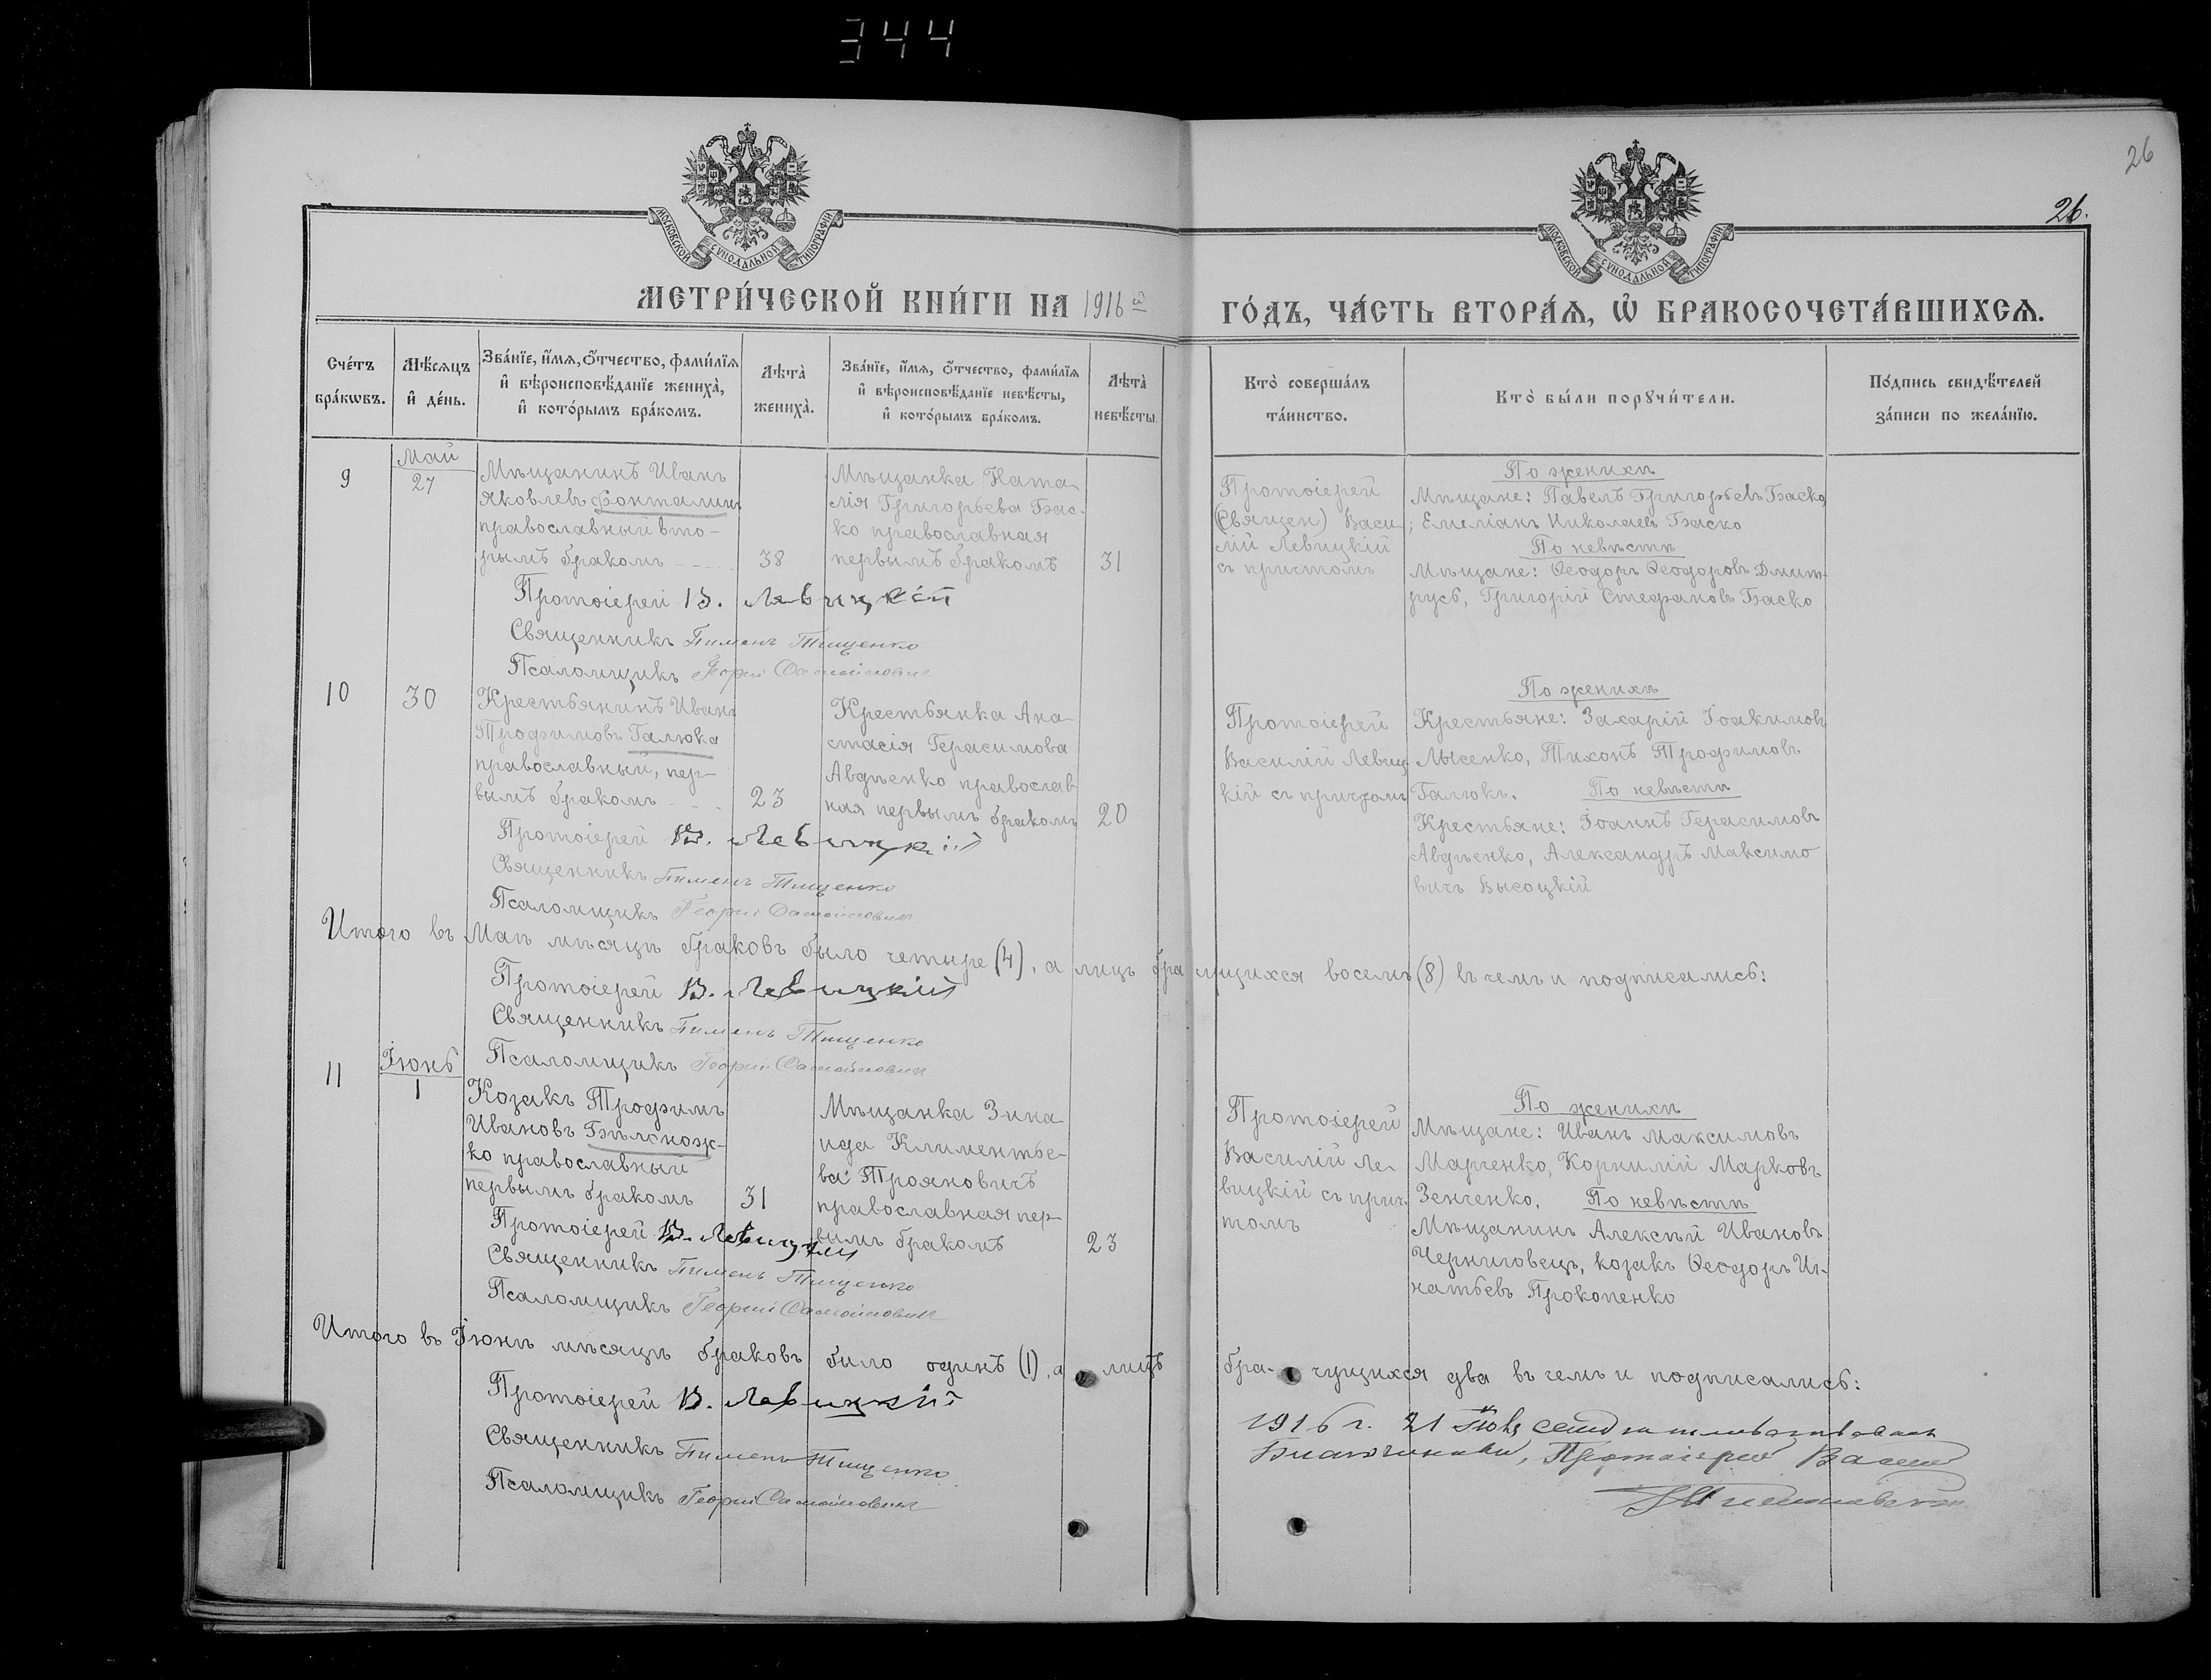 344
26
26.
МОСКОВСКОЙ СѴНОДАЛЬНОЙ ТИПОГРАФІИ
МОСКОВСКОЙ СѴНОДАЛЬНОЙ ТИПОГРАФІИ
МЕТРИ́ЧЕСКОЙ КНИ́ГИ НА 1916й ГО́ДЪ, ЧА́СТЬ ВТОРА́Ѧ, Ѽ БРАКОСОЧЕТА́ВШИХСѦ.
Сче́тъ
бра́кѡвъ.
Мѣ́сѧцъ
и҆ де́нь.
Зва́нїе, и҆́мѧ, ѻ҆́тчество, фами́лїѧ
и҆ вѣроисповѣ́данїе жениха̀,
и҆ кото́рымъ бра́комъ.
Лѣта̀
жениха̀.
Зва́нїе, и҆́мѧ, ѻ҆́тчество, фами́лїѧ
и҆ вѣроисповѣ́данїе невѣ́сты,
и҆ кото́рымъ бра́комъ.
Лѣта̀
невѣ́сты.
Кто̀ соверша́лъ
та́инство.
Кто̀ бы́ли порꙋчи́тели.
По́дпись свидѣ́телей
за́писи по жела́нїю.
9
Май
27
Мѣщанинъ Иванъ
Яковлевъ Фонталинъ
православный вто-
рымъ бракомъ
38
Мѣщанка Ната-
лія Григорьева Бас-
ко православная
первымъ бракомъ
31
Протоіерей
(Священ) Васи-
лій Левицкій
съ причтомъ
По женихѣ
Мѣщане: Павелъ Григорьевъ Баско,
; Емеліанъ Николаевъ Баско
По невѣстѣ
Мѣщане: Ѳеодоръ Ѳеодоровъ Дмит-
русь, Григорій Стефановъ Баско
Протоіерей В. Левицкій
Священникъ Пименъ Тищенко
Псаломщикъ Георгій Самойловичъ
10
30
Крестьянинъ Иванъ
Трофимовъ Галюка
православный, пер-
вымъ бракомъ
23
Крестьянка Ана-
стасія Герасимова
Авдѣенко православ-
ная первымъ бракомъ
20
Протоіерей
Василій Левиц-
кій съ причтомъ
По женихѣ
Крестьяне: Захарій Іоакимовъ
Лысенко, Тихонъ Трофимовъ
Галюкъ. По невѣстѣ
Крестьяне: Іоаннъ Герасимовъ
Авдѣенко, Александръ Максимо
вичъ Высоцкій
Протоіерей В. Левицкій
Священникъ Пименъ Тищенко
Псаломщикъ Георгій Самойловичъ
Итого въ Маѣ мѣсяцѣ браковъ было четыре (4), а лицъ брачущихся восемь (8) въ чемъ и подписались:
Протоіерей В. Левицкій
Священникъ Пименъ Тищенко
Псаломщикъ Георгій Самойловичъ
11
Іюнь
1
Козакъ Трофимъ
Ивановъ Бѣлонож-
ко православный
первымъ бракомъ
31
Мѣщанка Зина-
ида Климентье-
ва Трояновичъ
православная пер-
вымъ бракомъ
23
Протоіерей
Василій Ле-
вицкій съ прич-
томъ
По женихѣ
Мѣщане: Иванъ Максимовъ
Марченко, Корнилій Марковъ
Зенченко. По невѣстѣ
Мѣщанинъ Алексѣй Ивановъ
Черниговецъ, козакъ Ѳеодоръ Иг-
натьевъ Прокопенко
Протоіерей В. Левицкій
Священникъ Пименъ Тищенко
Псаломщикъ Георгій Самойловичъ
Итого въ Іюнѣ мѣсяцѣ браковъ было одинъ (1), а лицъ бра-чущихся два въ чемъ и подписались:
Протоіерей В. Левицкій
Священникъ Пименъ Тищенко
Псаломщикъ Георгій Самойловичъ
1916 г. 21 Іюня свидѣтельствовалъ
Благочинный, Протоіерей Василій